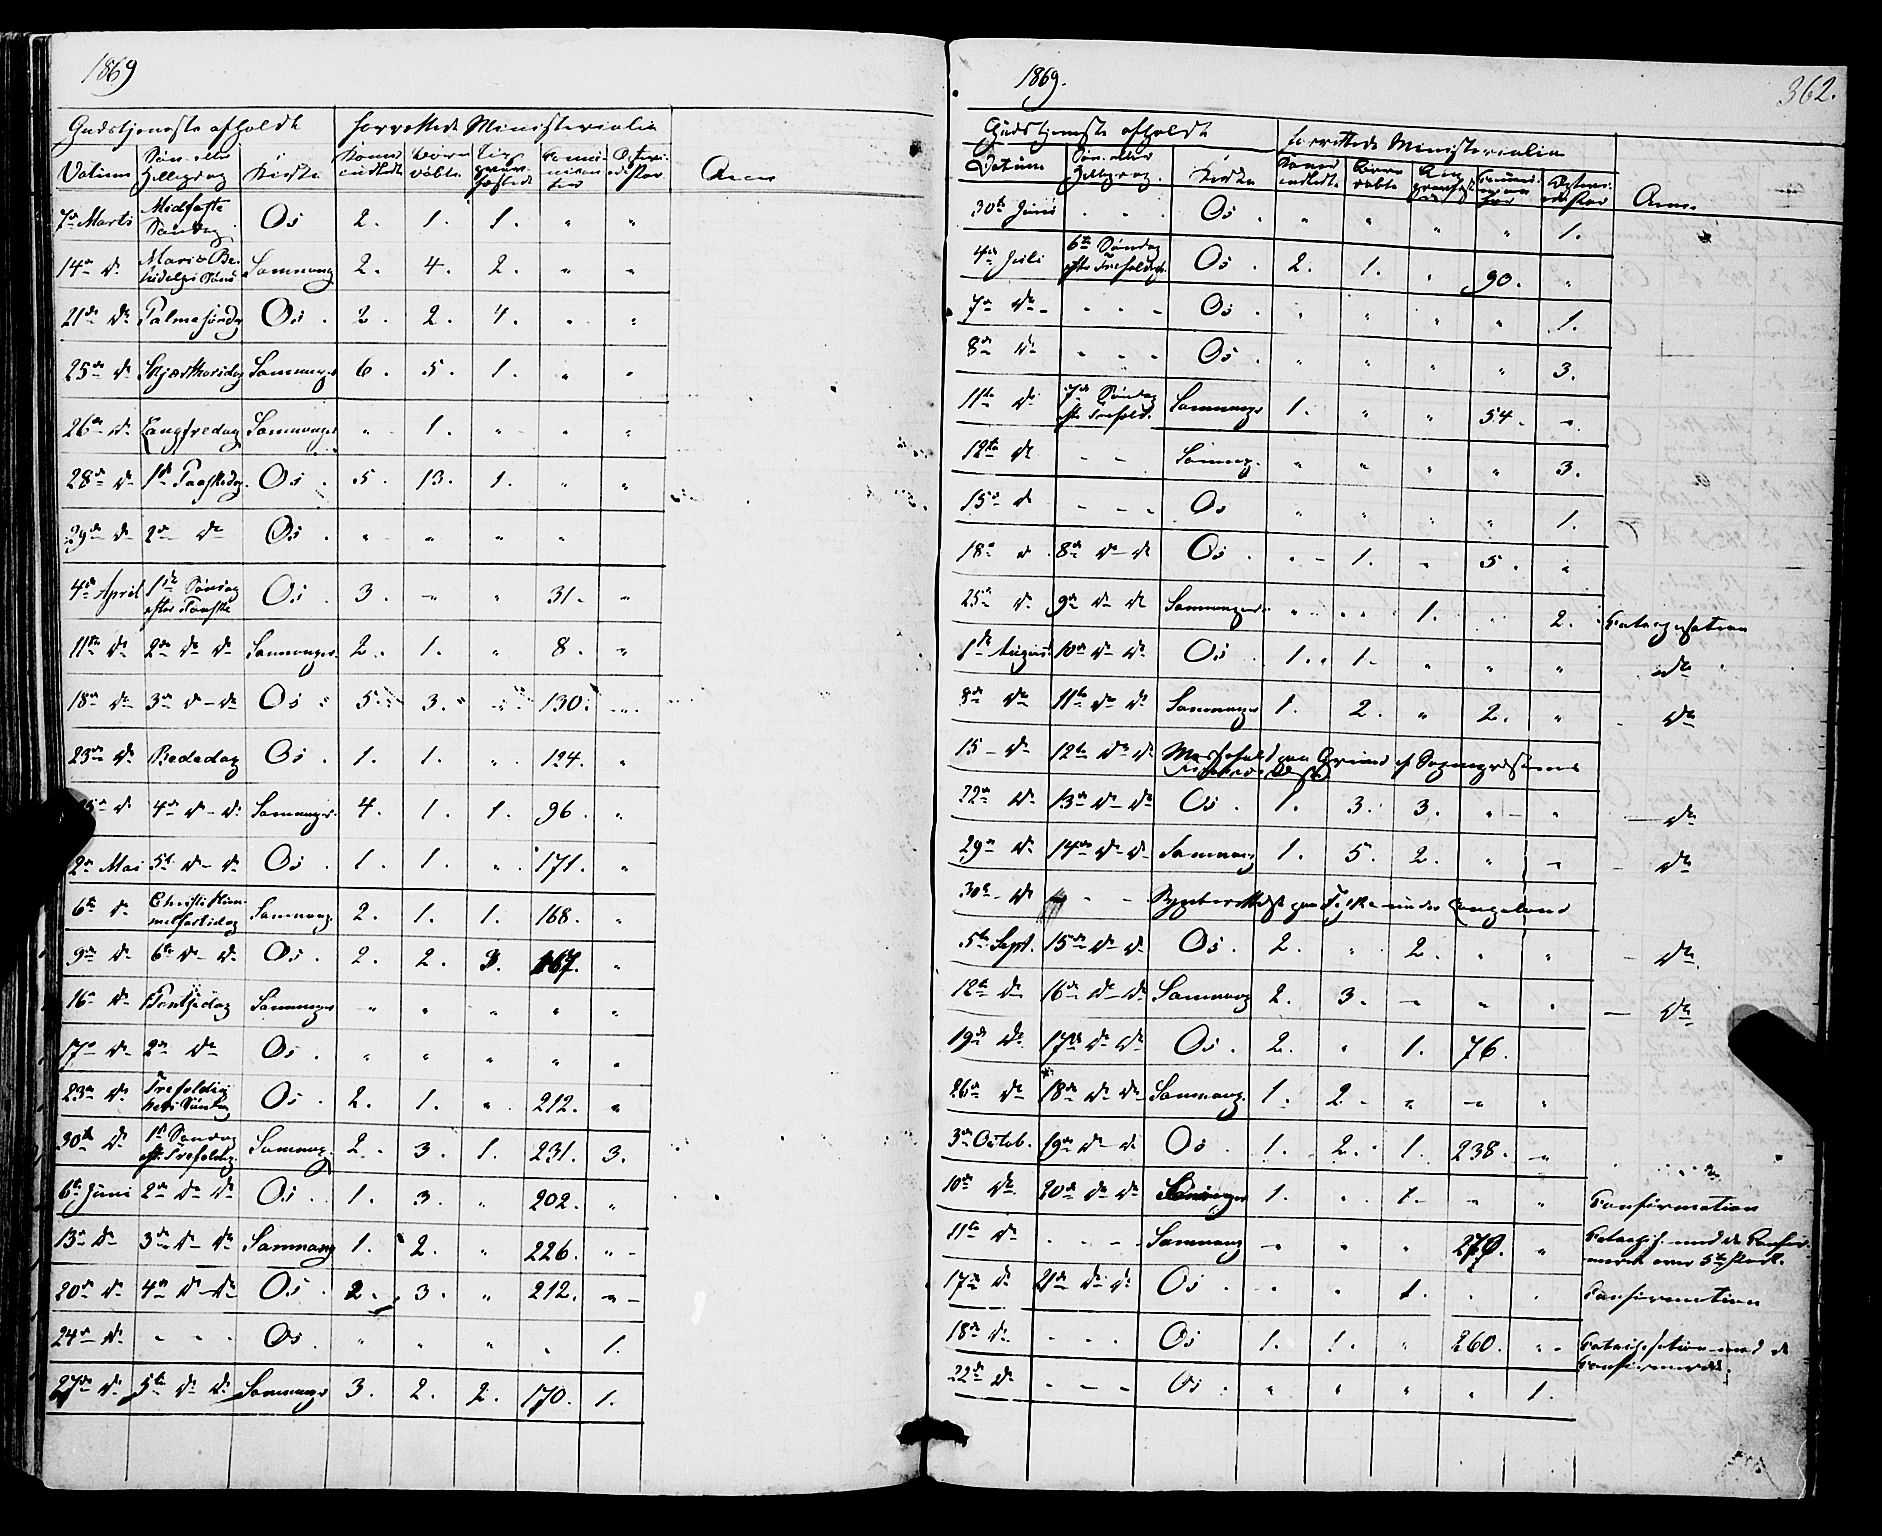 1869
Gudstjeneste afholdt | Forrettede Ministerialia
Datum | Søn- eller Helligdag | Kirke | Koner indledte | Børn døbte | Lig graver fæstede | Communicanter | Anm
7de Marts | Midfaste Søndag | Os | 2. | 1. | 1. | " | "
14de d. | Mariæ Be- | Samnang | 2. | 4. | 2. | " | "
21de de | Palmesøndag | Os | 2. | 2. | 4. | " | "
25de d | Skjærthorsdag | Samnanger | 6. | 5. | 1. | " | "
26de d. | Langfredag | Samnanger | " | 1. | " | " | "
28de d. | 1ste Paaskedag | Os | 5. | 13. | 1. | " | "
29de d | 2de de | Os | " | " | " | "
4de April | 1ste Søndag efter Paaske | Os | 3. | " | " | 31. | "
11te de | 2de de de | Samnanger | 2. | 1. | " | 8. | "
18de de | 3de d - de | Os | 5. | 3. | " | 130. | "
23de de | Bededag | Os | 1. | 1. | " | 124. | "
25de d | 4de d - d. | Samnanger | 4. | 1. | 1. | 96. | "
2den Mai | 5te d - d | Os | 1. | 1. | " | 171. | "
6te d. | Christi Himmelfartsdag | Samnang. | 2. | 1. | 1. | 168. | "
9de d. | 6te d - d. | Os | 2. | 2. | 3. | 167. | "
16de d. | Pentsedag | Samnanger | " | " | " | " | "
17de d. | 2de de | Os | " | " | " | " | "
23de d. | Trefoldigheds Søndag | Os | 2. | 1. | " | 212. | "
30te d. | 1ste Søndag eft. Trefoldig. | Samnang. | 2. | 3. | 1. | 231. | 3.
6te Juni | 2de de de | Os | 1. | 3. | " | 202. | "
13de de | 3de d - de | Samnang | 1. | 2. | " | 226. | "
20de de | 4de d - de | Os | 2. | 3. | " | 212. | "
24de de | " " " | Os | " | " | " | " | 1.
27de d. | 5te de de | Samnang | 3. | 2. | 2. | 170. | 1.
1869. 362.
Gudstjeneste afholdt | Forrettede Ministerialia
Datum | Søn- eller Helligdag. | Kirke | Koner indledte | Børn døbte | Anm.
30te Juni | " " " | Os | " | " | " | " | 1.
4de Juli | 6te Søndag efter Trefoldigh. | Os | 2. | 1. | " | 90. | "
7de de | " " " | Os | " | " | " | " | 1.
8de de | " " " | Os | " | " | " | " | 3.
11te d. | 7de Søndag eft. Trefold. | Samnang | 1. | " | " | 54. | "
12te de | " " | Samnang. | " | " | " | " | 3.
15de d | " " " | Os | " | " | " | " | 1.
18de d | 8de de - de | Os | " | 1. | " | 5. | "
25de d. | 9de de de | Samnanger | " | " | 1. | " | 2. | Catechisation
1ste August | 10de de de | Os | 1. | 1. | " | " | " | de
8de de | 11te de de | Samnanger | 1. | 2. | " | 2. | " | de
15 - de | 12te de de | Messefald paa Grund af Sognepræstens
22de de | 13de de - de | Os | 1. | 3. | 3. | " | " | de
29de de | 14de de de | Samnang | 1. | 5. | 2. | " | " | de
30te - de | " - | under Langeland
5te Sept. | 15de de de | Os | 2. | " | 2. | " | " | de
12te de | 16de de - de | Samnang | 2. | 3. | " | " | " | de
19de de | 17de de de | Os | 2. | " | 1. | 76.
26de de | 18de de de | Samnang. | 1. | 2. | " | " | "
3de Octob. | 19de de de | Os | 1. | 2. | 1. | 238. | "
10de de | 20de de de | Samnanger | 1. | " | 1. | " | " | Confirmation
11te de | " " " | Samnang | " | " | " | 270. | " | Catechis. med de Confirmerede
17de de | 21de de de | Os | " | " | 1. | " | " | Confirmation
18de de | " " " | Os | 1. | 1. | " | 260. | " | Catechisation med de Confirmerede.
22de de | " " " | Os | " | " | " | " | 1.